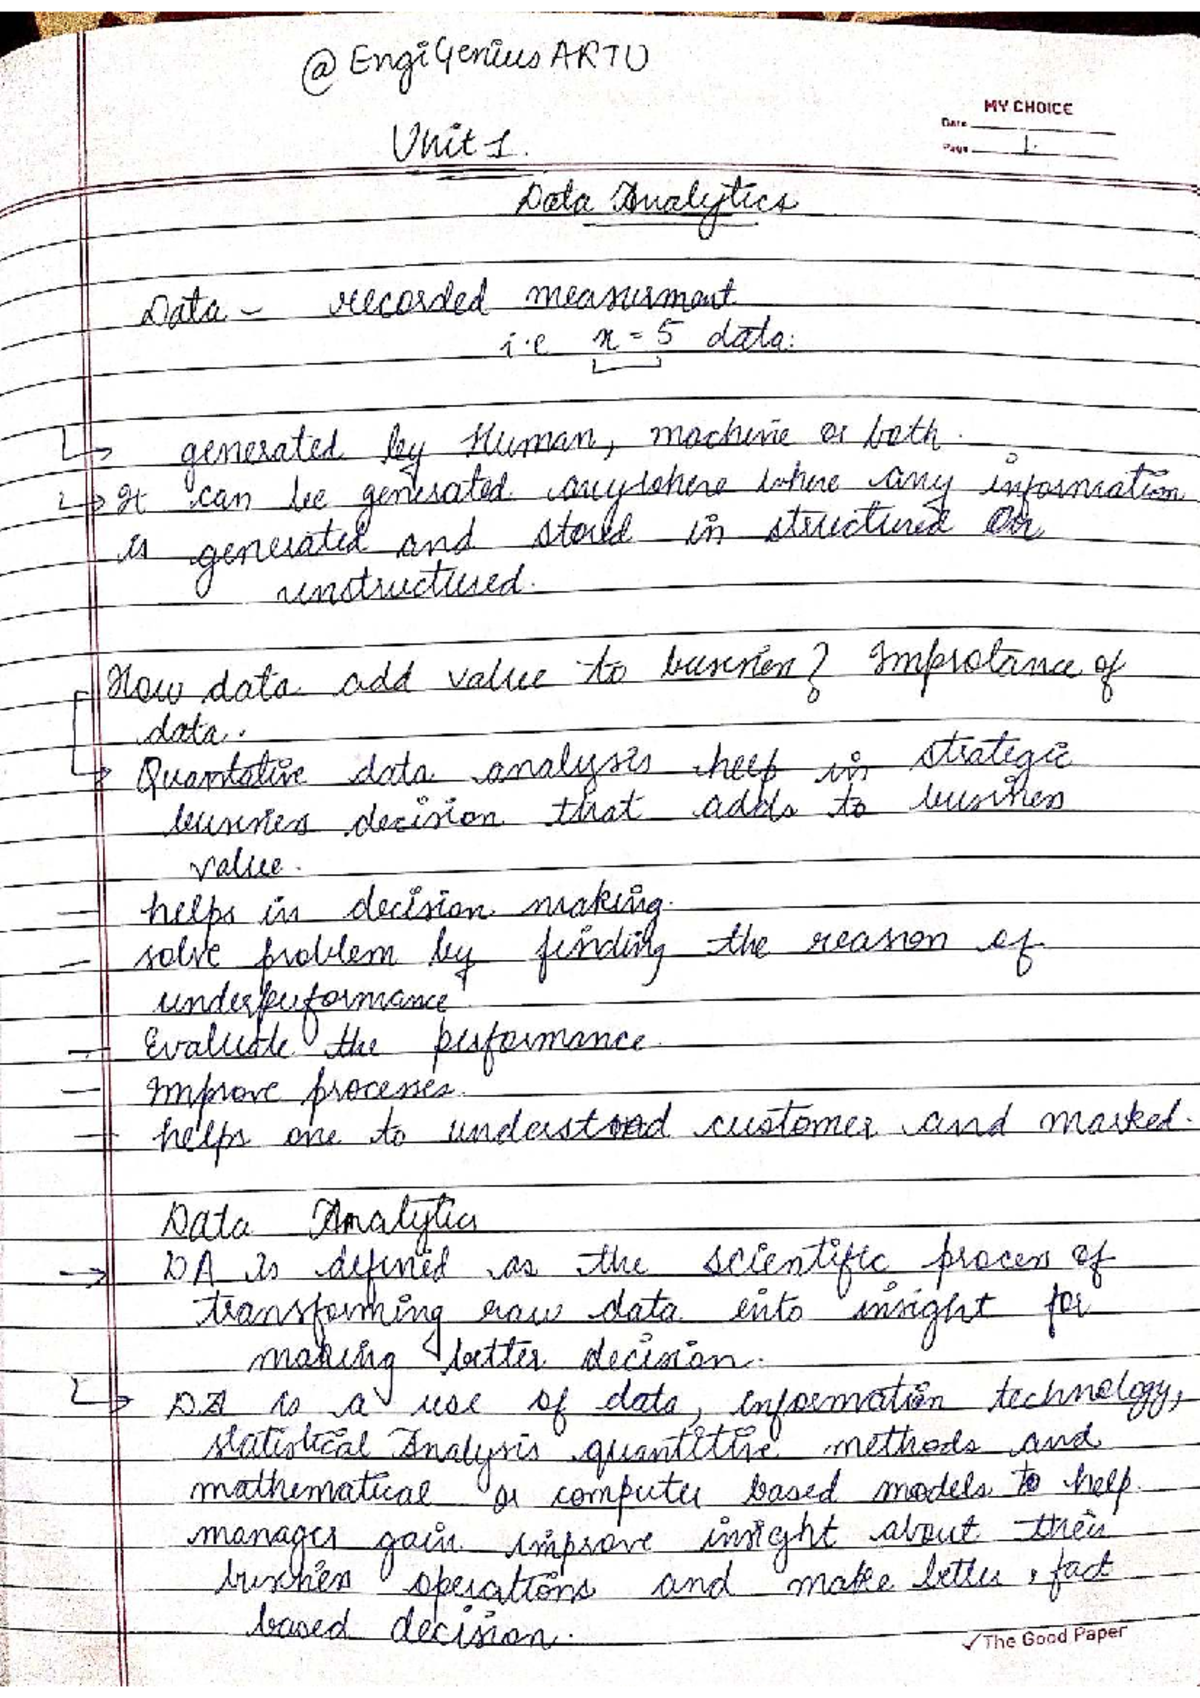 @EngiGenius ARTU
MY CHOICE
Date
Page 1.
Unit 1.
Data Analytics
Data - recorded measurment
i.e x = 5 data:
generated by Human, machine or both.
It can be generated anywhere where any information
is generated and stored in structured or
unstructured.
How data add value to business? Improtance of
data.
Quantative data analysis help in strategic
business decision that adds to business
value.
- helps in decision making.
- solve problem by finding the reason of
underperformance
- Evaluate the performance.
- improve processes.
- helps one to understood customer and marked.
Data Analytics
→ DA is defined as the scientific process of
transforming raw data into insight for
making better decision.
DA is a use of data, information technology,
statistical Analysis quantitive methods and
mathematical or computer based models to help
manager gain improve insight about their
business operations and make better, fact
based decision.
✓The Good Paper